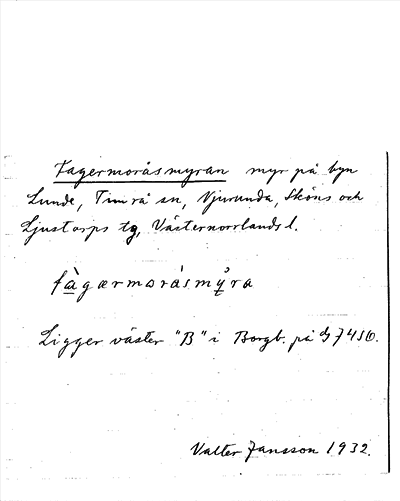 Fagermoråsmyran myr på byn
Lunde, Timrå sn, Njurunda, Sköns och
Ljustorps tg, Västernorrlands l.
fàgærmorásmy̌ra
Ligger väster "B" i Borgb. på
Valter Jansson 1932.